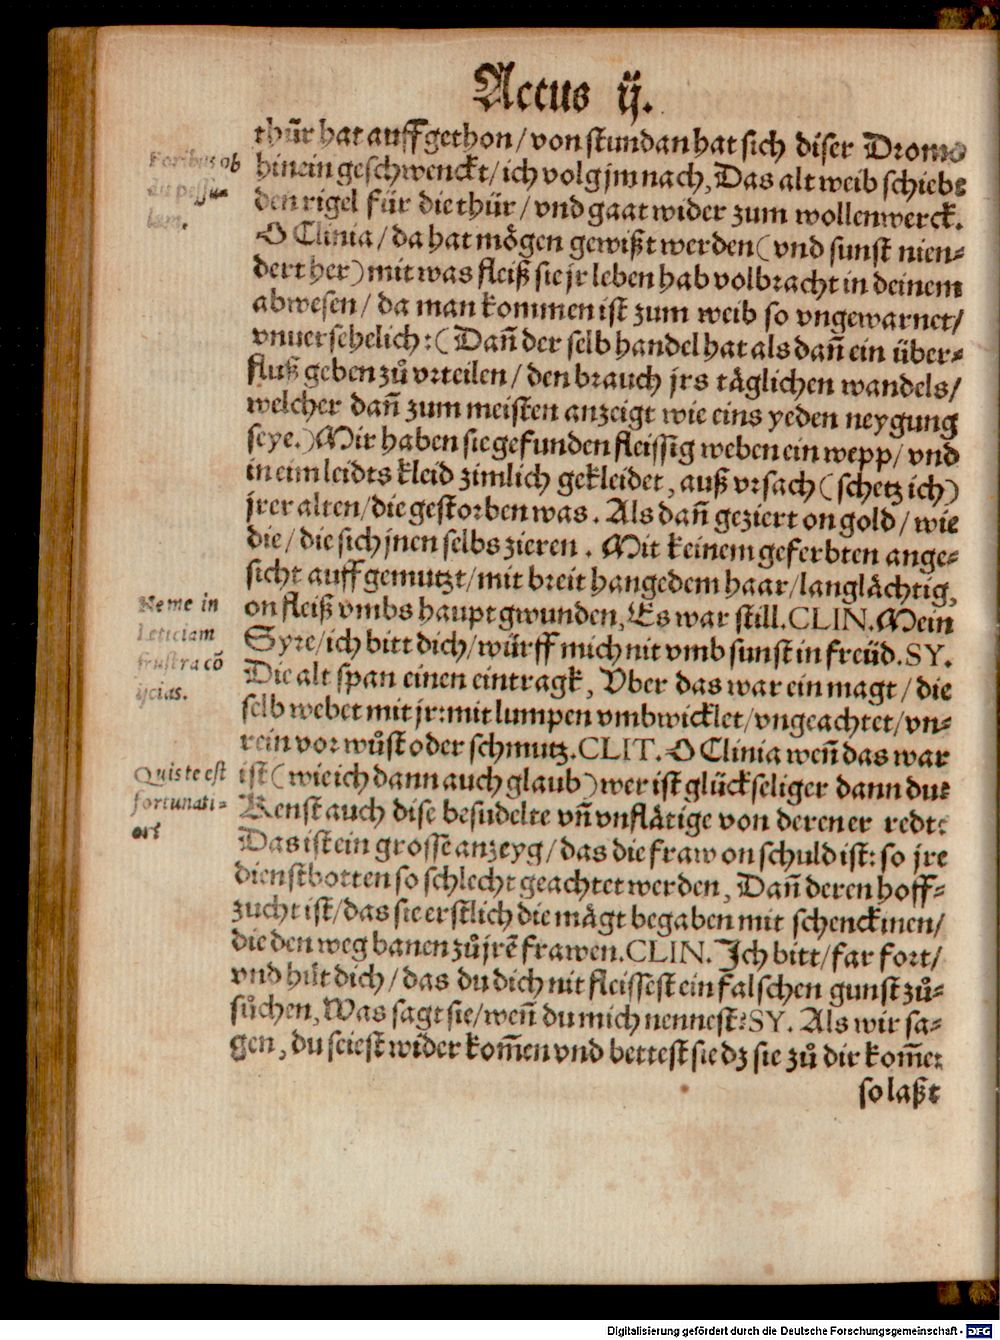 Actus ij.
thür hat auffgethon / von stundan hat sich diser Dromo
hinein geschwenckt / ich volg jm nach, Das alt weib schiebt
den rigel für die thür / vnd gaat wider zum wollenwerck.
O Clinia / da hat mögen gewißt werden (vnd sunst nien⸗
dert her) mit was fleiß sie jr leben hab volbracht in deinem
abwesen / da man kommen ist zum weib so vngewarnet /
vnuersehelich: (Dañ der selb handel hat als dañ ein über⸗
fluß geben zů vrteilen / den brauch jrs täglichen wandels /
welcher dañ zum meisten anzeigt wie eins yeden neygung
seye.) Mir haben sie gefunden fleissig weben ein wepp / vnd
in eim leidts kleid zimlich gekleidet, auß vrsach (schetz ich)
jrer alten / die gestorben was. Als dañ geziert on gold / wie
die / die sich jnen selbs zieren. Mit keinem geferbten ange⸗
sicht auffgemutzt / mit breit hangedem haar / langlächtig,
on fleiß vmbs haupt gwunden, Es war still. CLIN. Mein
Syre / ich bitt dich / würff mich nit vmb sunst in freüd. SY.
Die alt span einen eintragk, Vber das war ein magt / die
selb webet mit jr: mit lumpen vmbwicklet / vngeachtet / vn⸗
rein vor wůst oder schmutz. CLIT. O Clinia weñ das war
ist (wie ich dann auch glaub) wer ist glückseliger dann du?
Kenst auch dise besudelte vñ vnflätige von deren er redt?
Das ist ein grosse anzeyg / das die fraw on schuld ist: so jre
dienstbotten so schlecht geachtet werden, Dañ deren hoff⸗
zucht ist / das sie erstlich die mägt begaben mit schenckinen /
die den weg banen zů jrẽ frawen. CLIN. Ich bitt / far fort /
vnd hüt dich / das du dich nit fleissest ein falschen gunst zů⸗
sůchen, Was sagt sie / weñ du mich nennest? SY. Als wir sa⸗
gen, du seiest wider kom̃en vnd bettest sie dz sie zů dir kom̃e:
so laßt
Foribus ob
du pessu⸗
lum.
Ne me in
Leticiam
frustra cõ
ijcias.
Quis te est
fortunati⸗
or?
Digitalisierung gefördert durch die Deutsche Forschungsgemeinschaft - DFG